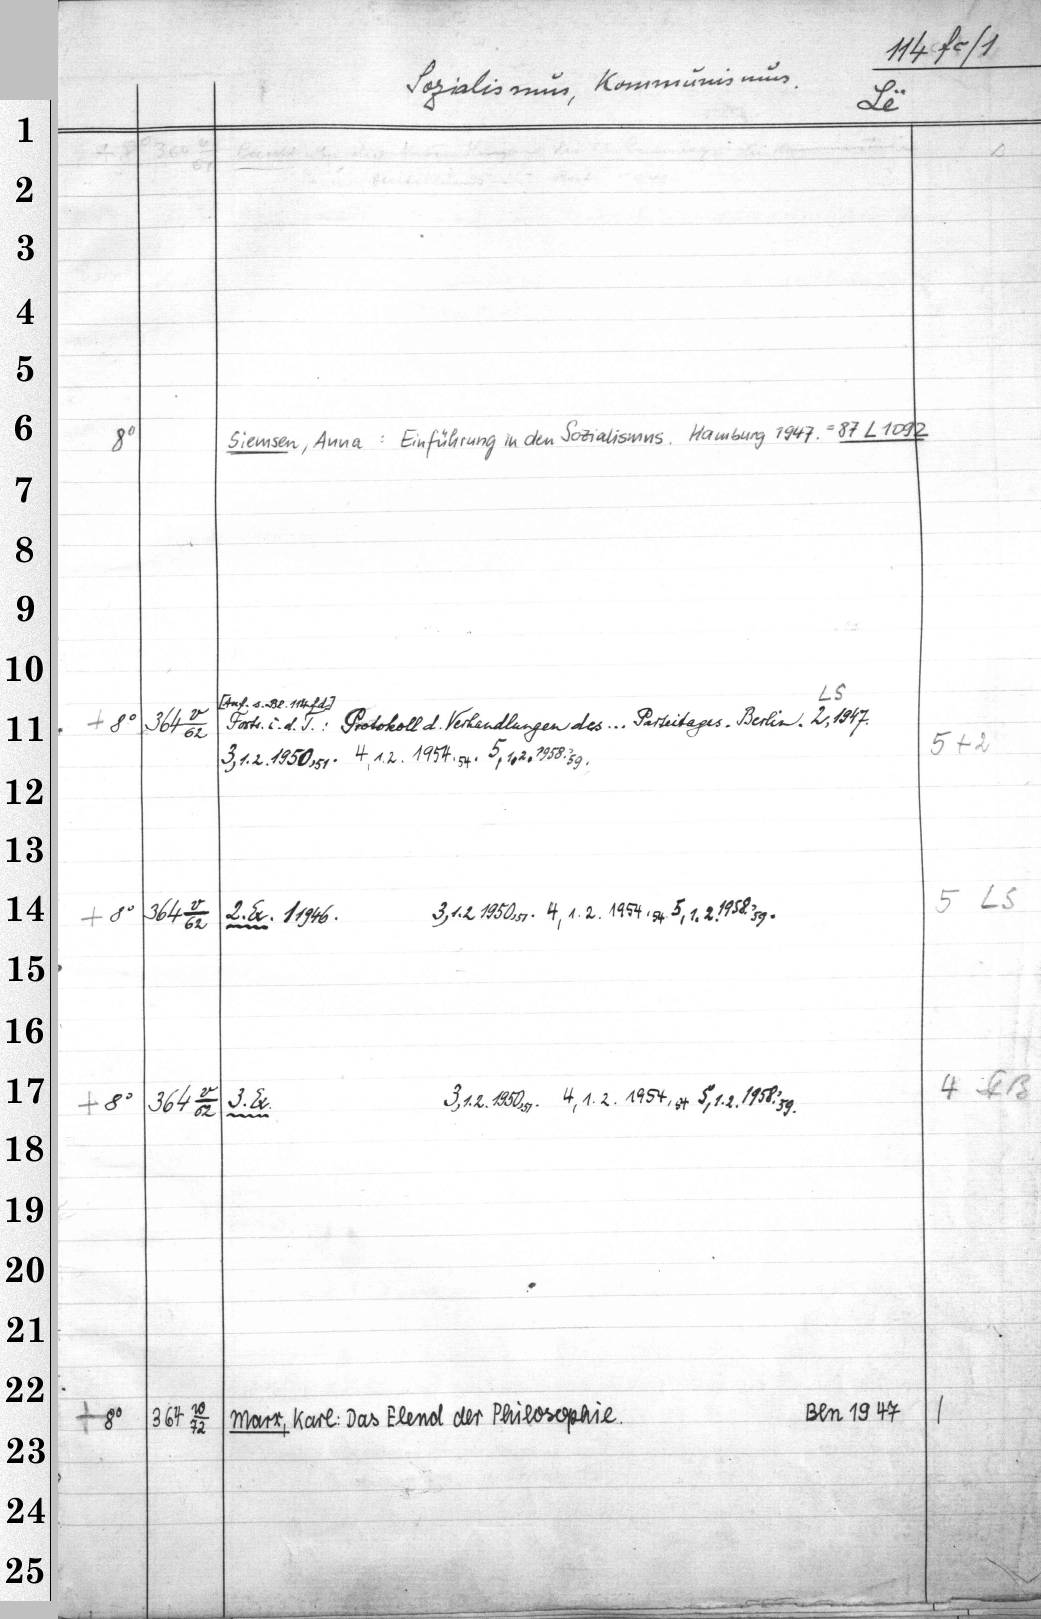 114 fc/1
Sozialismus, Kommunismus.
Lë
1
2
3
4
5
6 8° Siemsen, Anna : Einführung in den Sozialismus. Hamburg 1947. = 87 L 1092
7
8
9
10
LS
[Anf. s. Bl. 114fd]
11 + 8° 364 v/62 Forts. i. d. T.: Protokoll d. Verhandlungen des ... Parteitages. Berlin. 2, 1947.
3, 1.2. 1950,51. 4, 1.2. 1954.54. 5, 1.2. 1958.59. 5+2
12
13
14 + 8° 364 v/62 2. Ex. 1 1946. 3, 1.2 1950,51. 4, 1.2. 1954.54 5, 1.2. 1958.59. 5 LS
15
16
17 + 8° 364 v/62 3. Ex. 3, 1.2. 1950,51. 4, 1.2. 1954.54 5, 1.2. 1958.59. 4
18
19
20
21
22 + 8° 364 10/72 Marx, Karl: Das Elend der Philosophie. Bln 1947 1
23
24
25